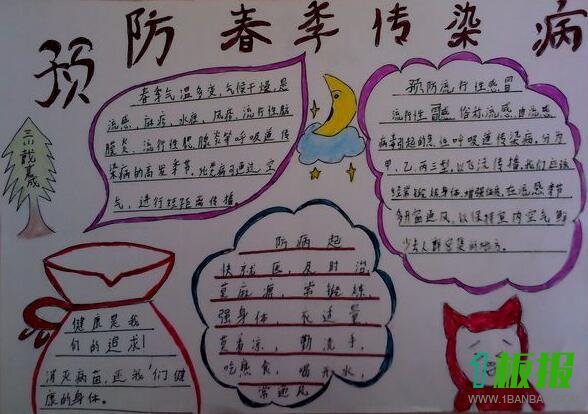 预防春季传染病
春季气温多变,气候干燥,是
流感、麻疹、水痘、风疹、流行性脑
膜炎、流行性腮腺炎等呼吸道传
染病的高发季节,此类病可通过空
气,进行短距离传播。
预防流行性感冒
流行性感冒俗称流感,由流感
病毒引起的急性呼吸道传染病,分为
甲、乙、丙三型,以飞沫传播,我们应该
经常锻练身体,增强体质,在流感季节
多开窗通风,以保持室内空气新
少去人群密集的地方。
防病起
快就医,及时治
莫麻痹,常锻练,
强身体,衣适量
莫着凉,勤洗手,
吃熟食,喝开水,
常通风
健康是我
们的追求!
消灭病苗,还我们健
康的身体。
板报
WWW.1BANBAO.COM